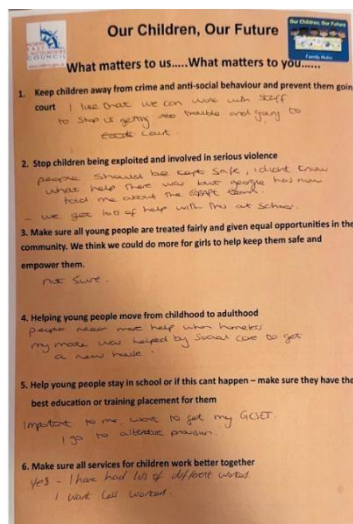 NORTH EAST LINCOLNSHIRE COUNCIL
Our Children, Our Future
Our Children, Our Future
Family Hubs
What matters to us.....What matters to you......
1. Keep children away from crime and anti-social behaviour and prevent them goin
court I like that we can work with staff
to stop us getting into trouble and going to
court.
2. Stop children being exploited and involved in serious violence
people should be kept safe, I didnt know
what help there was but george has now
told me about the team.
- we get lots of help with this at school.
3. Make sure all young people are treated fairly and given equal opportunities in the
community. We think we could do more for girls to help keep them safe and
empower them.
not sure.
4. Helping young people move from childhood to adulthood
people need more help when homeless
my mate was helped by social care to get
a new house.
5. Help young people stay in school or if this cant happen – make sure they have the
best education or training placement for them
Important to me, want to get my GCSEs.
I go to provision.
6. Make sure all services for children work better together
Yes - I have had lots of different workers
I want well worked.